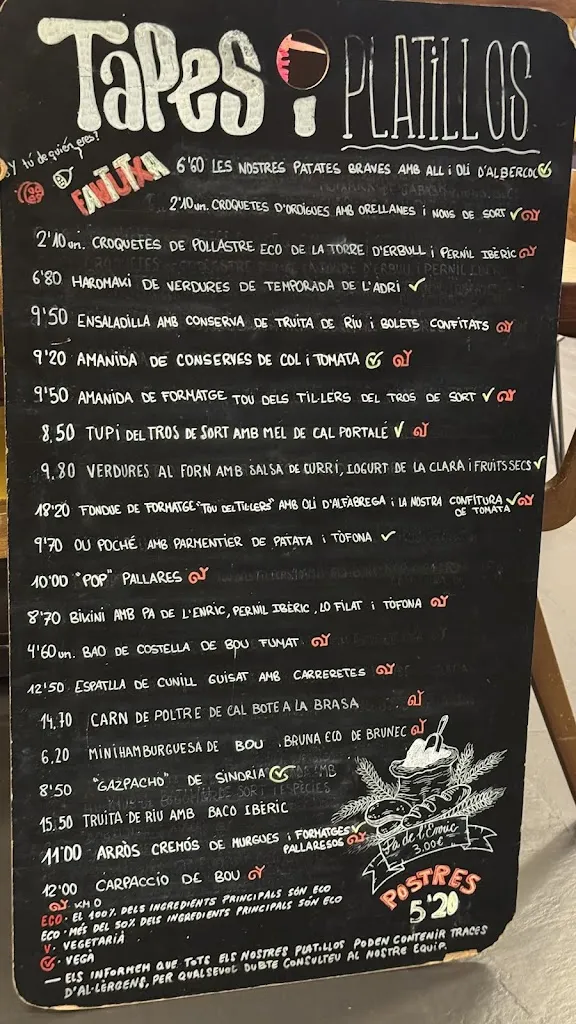 TAPES i PLATILLOS
Y tú de quién eres?
FANUTXA
6'60 LES NOSTRES PATATES BRAVES AMB ALL i OLI D'ALBERCOC
2'10 un. CROQUETES D'ORDIGUES AMB ORELLANES i NOUS DE SORT
2'10 un. CROQUETES DE POLLASTRE ECO DE LA TORRE D'ERBULL i PERNIL IBÈRIC
6'80 HAROMAKI DE VERDURES DE TEMPORADA DE L'ADRI
9'50 ENSALADILLA AMB CONSERVA DE TRUITA DE RIU i BOLETS CONFITATS
9'20 AMANIDA DE CONSERVES DE COL i TOMATA
9'50 AMANIDA DE FORMATGE TOU DELS TIL·LERS DEL TROS DE SORT
8,50 TUPÍ DEL TROS DE SORT AMB MEL DE CAL PORTALÉ
9,80 VERDURES AL FORN AMB SALSA DE CURRI, IOGURT DE LA CLARA i FRUITS SECS
18'20 FONDUE DE FORMATGE "TOU DEL TIL·LERS" AMB OLI D'ALFÀBREGA i LA NOSTRA CONFITURA
DE TOMATA
9'70 OU POCHÉ AMB PARMENTIER DE PATATA i TÒFONA
10'00 "POP" PALLARES
8'70 BIKINI AMB PA DE L'ENRIC, PERNIL IBÈRIC, LO FILAT i TÒFONA
4'60 un. BAO DE COSTELLA DE BOU FUMAT
12'50 ESPATLLA DE CUNILL GUISAT AMB CARRERETES
14,70 CARN DE POLTRE DE CAL BOTE A LA BRASA
6,20 MINIHAMBURGUESA DE BOU .BRUNA ECO DE BRUNEC
8'50 "GAZPACHO" DE SINDRIA
15.50 TRUITA DE RIU AMB BACO IBÈRIC
11'00 ARRÒS CREMÓS DE MURGUES i FORMATGES
PALLARESOS
12'00 CARPACCIO DE BOU
Pa de l'Enric
3,00€
POSTRES
5'20
KM 0
ECO · EL 100% DELS INGREDIENTS PRINCIPALS SÓN ECO
ECO · MÉS DEL 50% DELS INGREDIENTS PRINCIPALS SÓN ECO
V · VEGETARIÀ
· VEGÀ
— ELS INFORMEM QUE TOTS ELS NOSTRES PLATILLOS PODEN CONTENIR TRACES
D'AL·LÈRGENS, PER QUALSEVOL DUBTE CONSULTEU AL NOSTRE EQUIP.